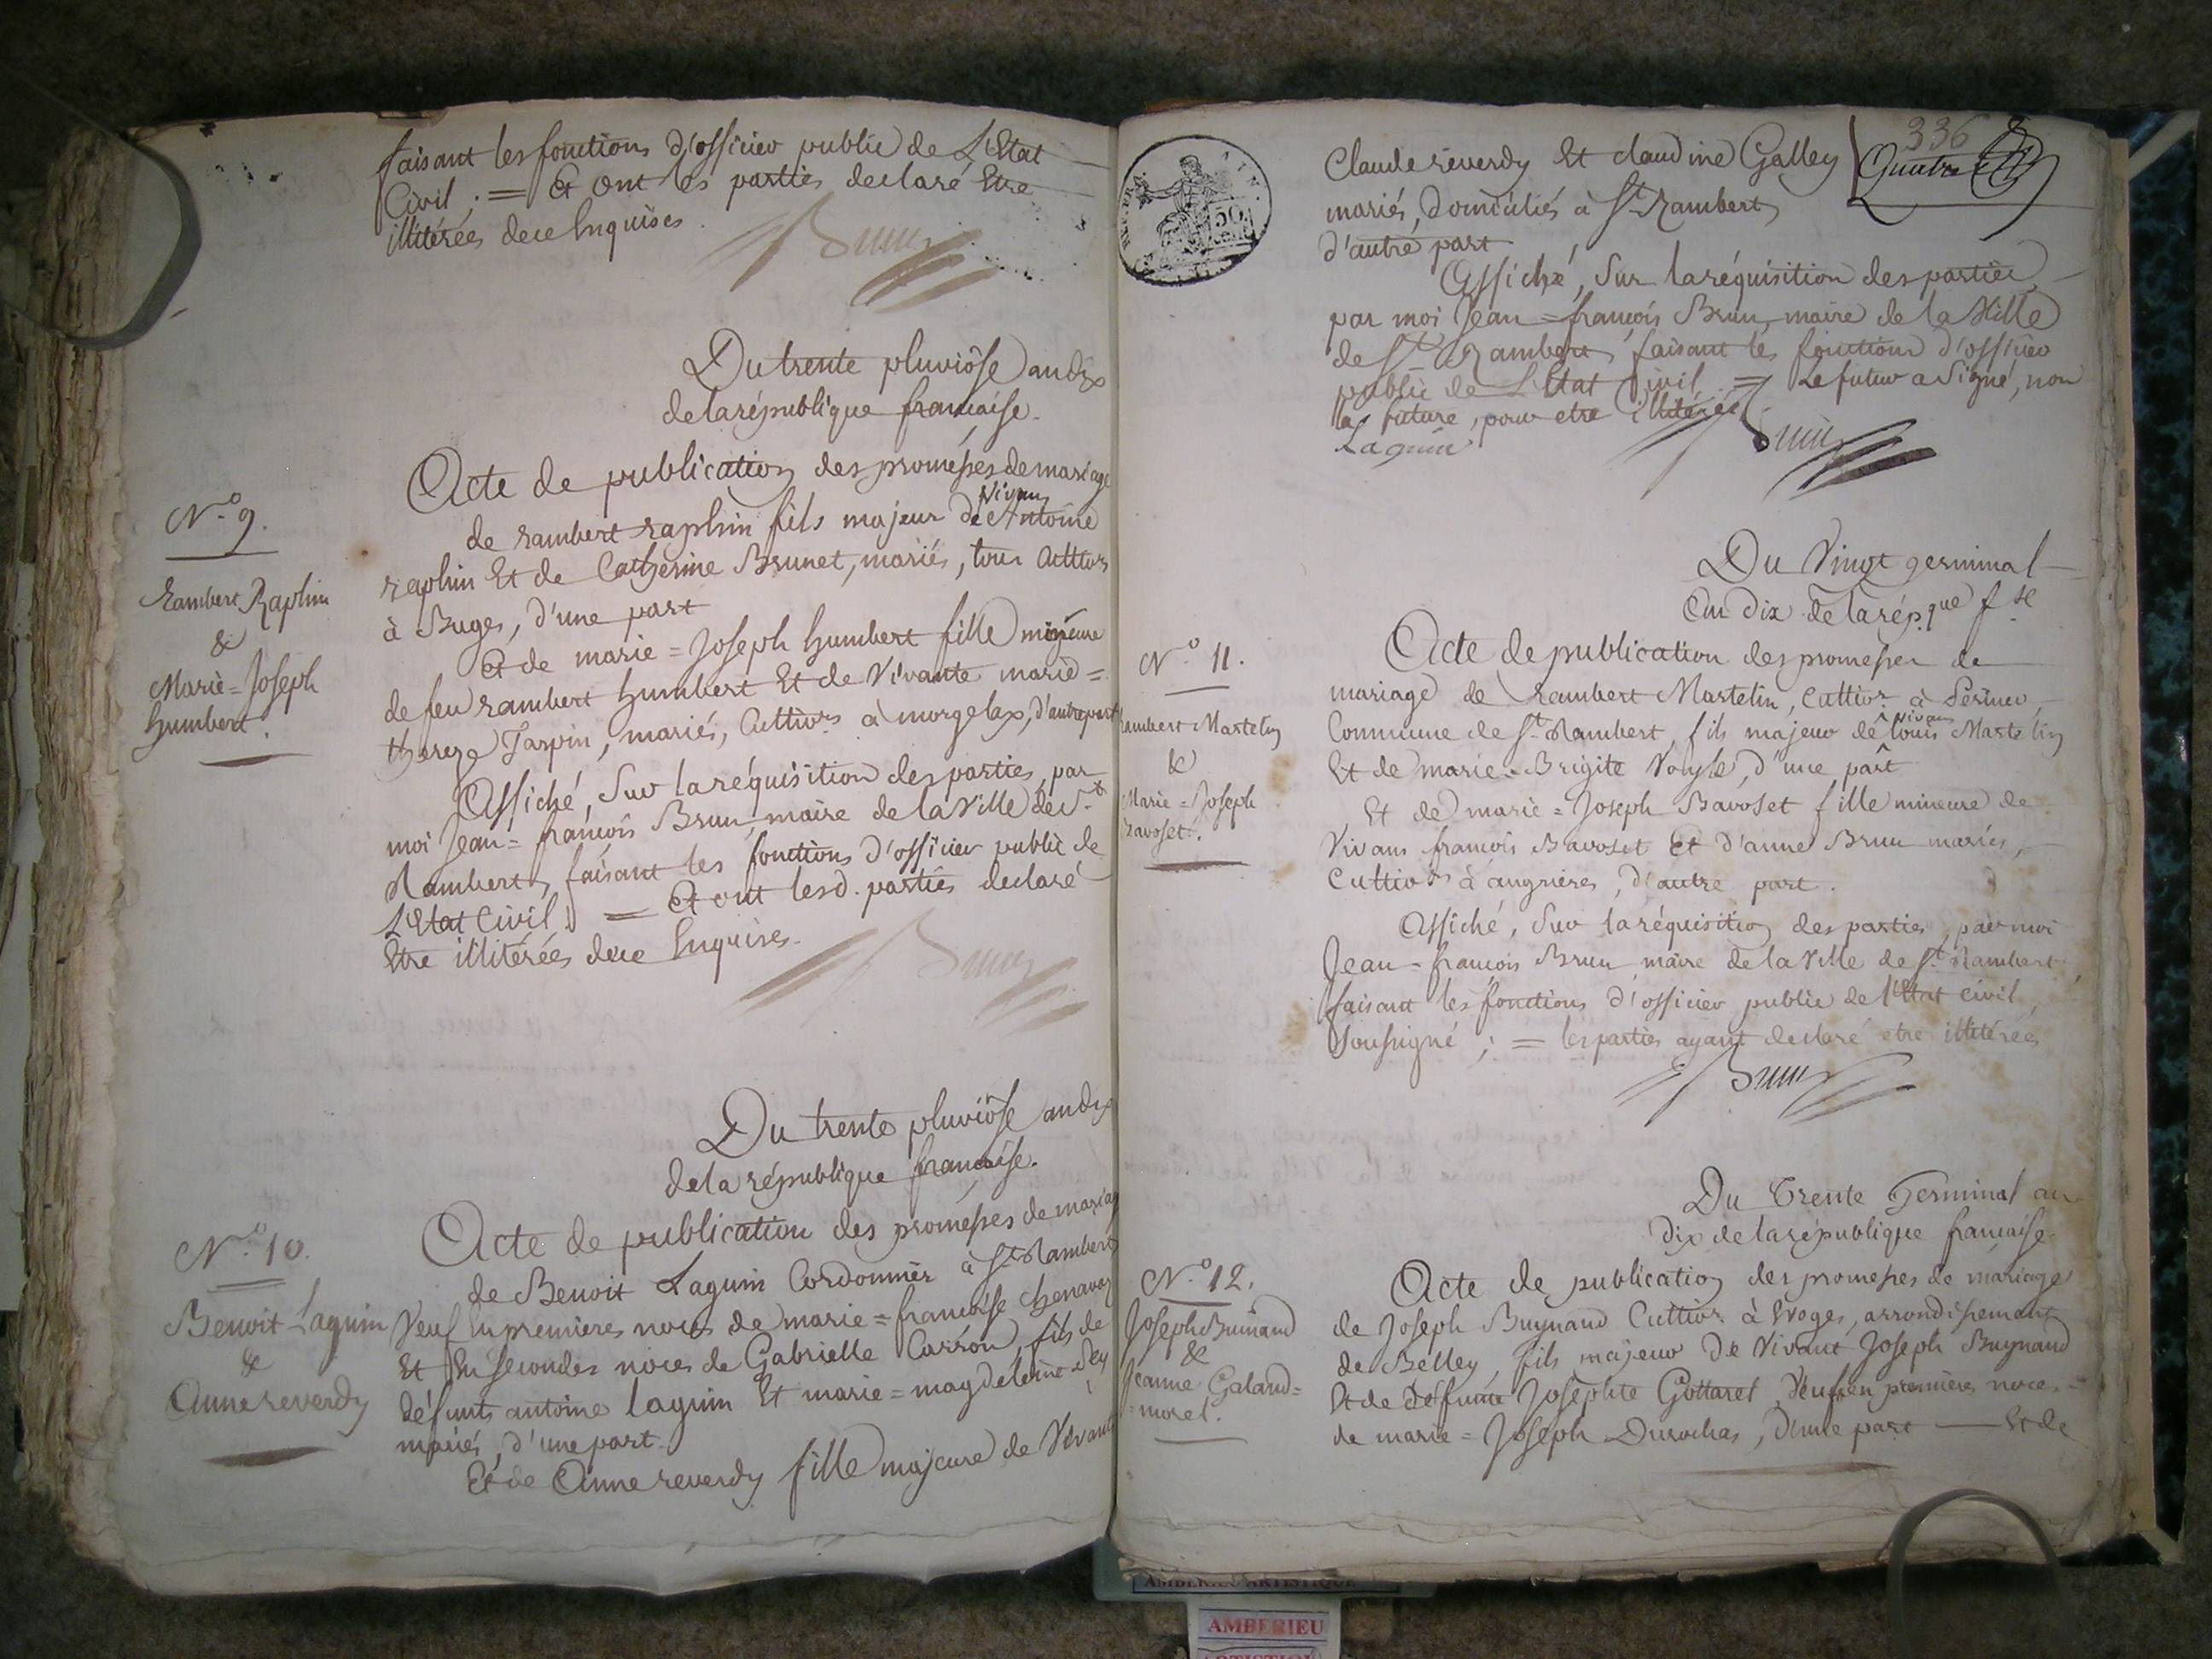 faisant les fonctions d'officier public de L'Etat
Civil. = Et ont les parties declaré Etre
illitérées de ce Enquises.
Brun
Du trente pluviôse an dix
de la république française.
Acte de publication des promésses de mariage
N.o 9.
Rambert Raphin
&
Marie = Joseph
humbert.
de rambert raphin fils majeur de vivan Antoine
raphin Et de Catherine Brunet, mariés, tous Culttors
à Buges, d'une part
Et de marie = Joseph humbert fille mineure
de feu rambert humbert Et de Vivante marie =
thereze Tarpin, mariés, Culttivrs à morgelas, d'autre part
Affiché, Sur la réquisition des parties, par
moi Jean = françois Brun, maire de la Ville de St
Rambert, faisant les fonctions d'officier public de
L'Etat Civil. = Et ont lesd. parties declaré
Etre illitérées de ce Enquises.
Brun
Du trente pluviôse an dix
de la république française.
N.o 10.
Benoit Laguin
&
Anne reverdy
Acte de publication des promésses de mariag
de Benoit Laguin Cordonnier à St Rambert
Veuf En premieres noces de marie = françoise Chenavaz
Et En secondes noces de Gabrielle Carron, fils de
défunts antoine laguin Et marie = magdeleine
mariés, d'une part.
Et de Anne reverdy fille majeure de Vivant
336
Claude reverdy Et claudine Galley
mariés, domiciliés à St Rambert,
d'autre part
Affiché, Sur la réquisition des parties,
par moi Jean = françois Brun, maire de la Ville
de St Rambert, faisant les fonctions d'officier
public de L'Etat Civil. = Le futur a Signé, non
la future, pour etre illitérée.
Laguin
Brun
Du Vingt germinal
an dix de la rép.que f.se
N.o 11.
Rambert Martelin
&
Marie = Joseph
Bavoset.
Acte de publication des promesses de
mariage de Rambert Martelin, Culttivr. à Serrieu,
Commune de St Rambert, fils majeur de vivans louis Martelin
Et de marie = Brigite Volyle, d'une part
Et de marie = Joseph Bavoset fille mineure de
Vivans françois Bavoset Et d'anne Brun mariés,
Culttivrs à angrières, d'autre part.
Affiché, Sur la réquisition des parties, par moi
Jean = françois Brun, maire de la Ville de St Rambert
faisant les fonctions d'officier public de l'Etat civil,
Soussigné ; = les parties ayant declaré etre illitérées
Brun
Du Trente Germinal an
dix de la république française.
N.o 12.
Joseph Buinand
&
Jeanne Galand =
= morel.
Acte de publication des promesses de mariage
de Joseph Buynand Culttivr. à Evoges, arrondissement
de Belley, fils majeur de Vivant Joseph Buynand
Et de défunte Josephte Gottaret, Veuf en premières noces =
de marie = Joseph Durochas, d'une part — Et de
AMBERIEU ARTISTIQUE
AMBERIEU
ARTISTIQUE